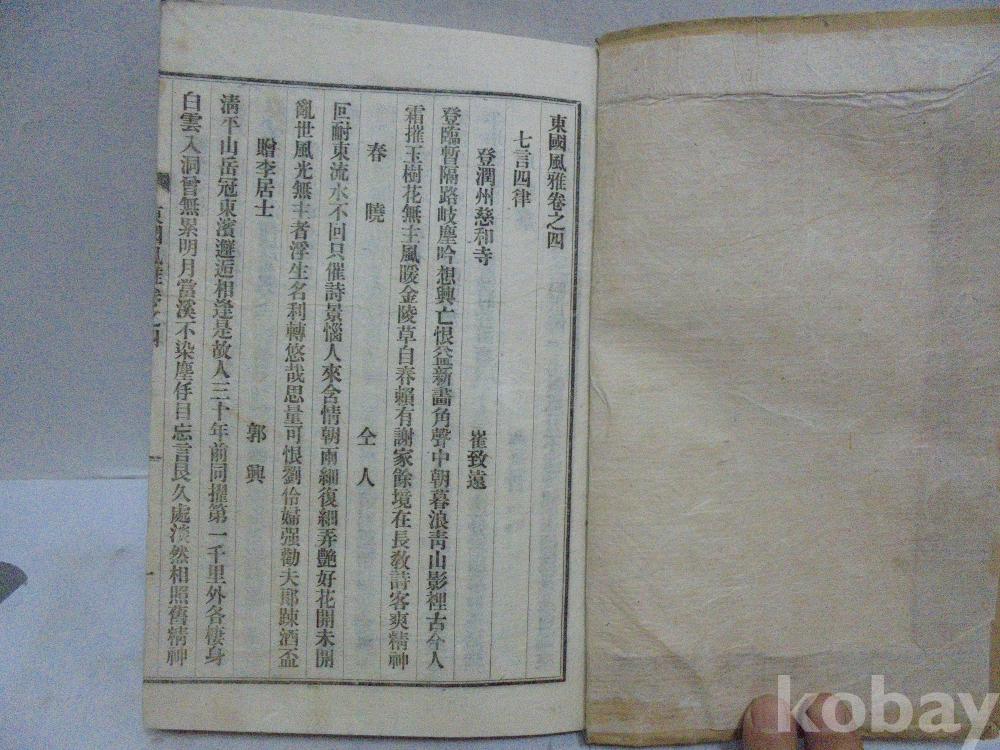 東國風雅卷之四
七言四律
登潤州慈和寺 崔致遠
登臨暫隔路岐塵吟想興亡恨益新畵角聲中朝暮浪靑山影裡古今人
霜摧玉樹花無主風暖金陵草自春賴有謝家餘境在長敎詩客爽精神
春曉 仝人
叵耐東流水不回只催詩景惱人來含情朝雨細復細弄艶好花開未開
亂世風光無主者浮生名利轉悠哉思量可恨劉伶婦强勸夫郞踈酒盃
贈李居士 郭興
淸平山岳冠東濱邂逅相逢是故人三十年前同擢第一千里外各棲身
白雲入洞曾無累明月當溪不染塵仔目忘言良久處淡然相照舊精神
東國風雅卷之四
一
kobay